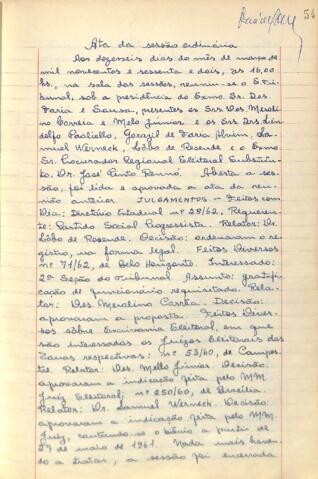 54
Ata da sessão ordinária
Aos dezesseis dias do mês de março de
mil novecentos e sessenta e dois, às 16,00
hs, na sala das sessões, reuniu-se o Tri-
bunal, sob a presidência do Exmo. Sr. Des.
Faria e Sousa, presentes os Srs. Des. Merolino
Corrêa e Mello Júnior e os Srs. Drs. Lin-
dolfo Paoliello, Gorazil de Faria Alvim, Sa-
muel Werneck, Lôbo de Resende e o Exmo
Sr. Procurador Regional Eleitoral Substitu-
to, Dr. José Pinto Rennó. Aberta a ses-
são, foi lida e aprovada a ata da reu-
nião anterior. JULGAMENTOS - Feitos com
Dia: Diretório Estadual nº 28/62. Requeren-
te: Partido Social Progressista. Relator: Dr.
Lôbo de Resende. Decisão: ordenaram o re-
gistro, na forma legal. Feitos Diversos
nº 71/62, de Belo Horizonte. Interessado:
2ª Seção do Tribunal. Assunto: gratifi-
cação de funcionário requisitado. Rela-
tor: Des. Merolino Corrêa. Decisão:
aprovaram a proposta. Feitos Diver-
sos sôbre Escrivania Eleitoral, em que
são interessados os Juízos Eleitorais das
Zonas respectivas: nº 53/60, de Campes-
tre. Relator: Des. Mello Júnior. Decisão:
aprovaram a indicação feita pelo MM.
Juiz Eleitoral; nº 250/60, de Brasília.
Relator: Dr. Samuel Werneck. Decisão:
aprovaram a indicação feita pelo MM.
Juiz, contando-se o biênio a partir de
29 de maio de 1961. Nada mais haven-
do a tratar, a sessão foi encerrada